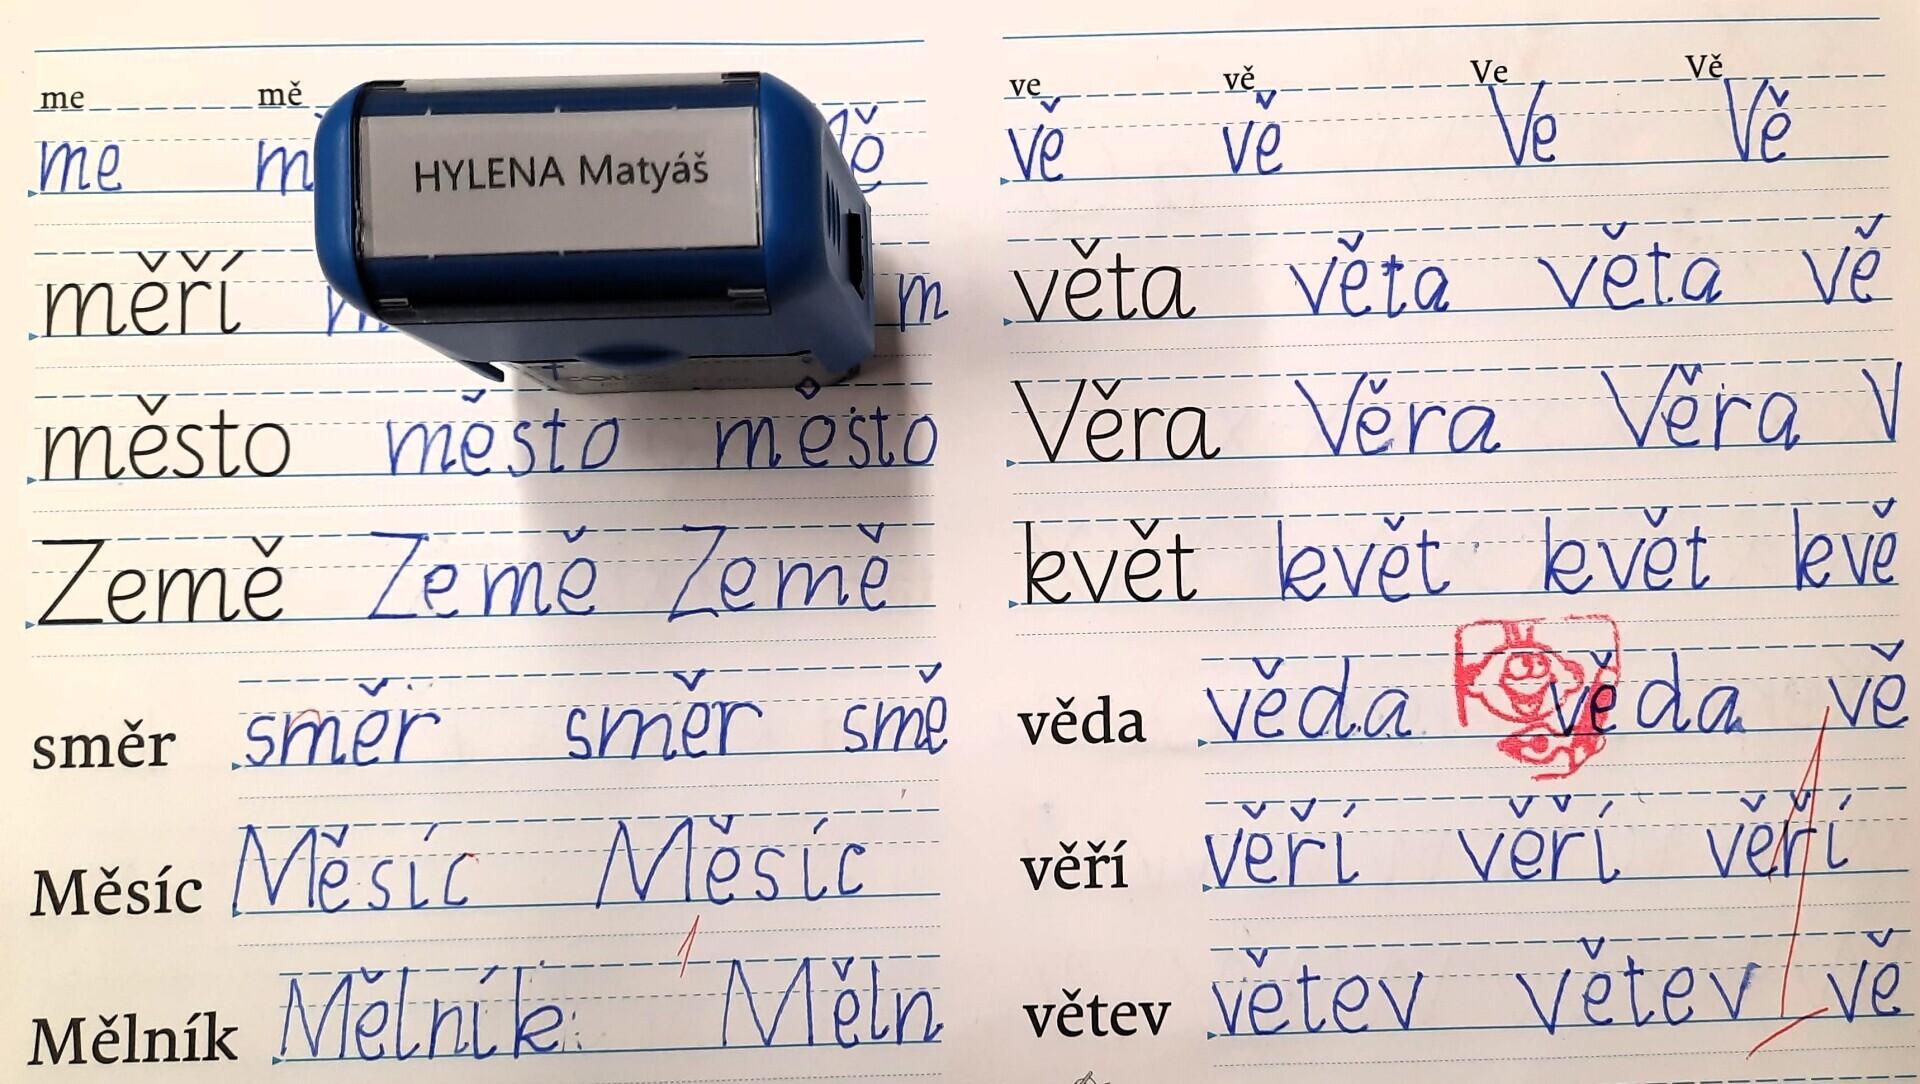 me mě
me
HYLENA Matyáš
měří m
město město město
Země Země Země
směr směr směr smě
Měsíc Měsíc Měsíc
Mělník Mělník Měln
ve vě Ve Vě
vě vě Ve Vě
věta věta věta vě
Věra Věra Věra V
květ květ květ kvě
věda věda věda vě
věří věří věří věří
větev větev větev vě